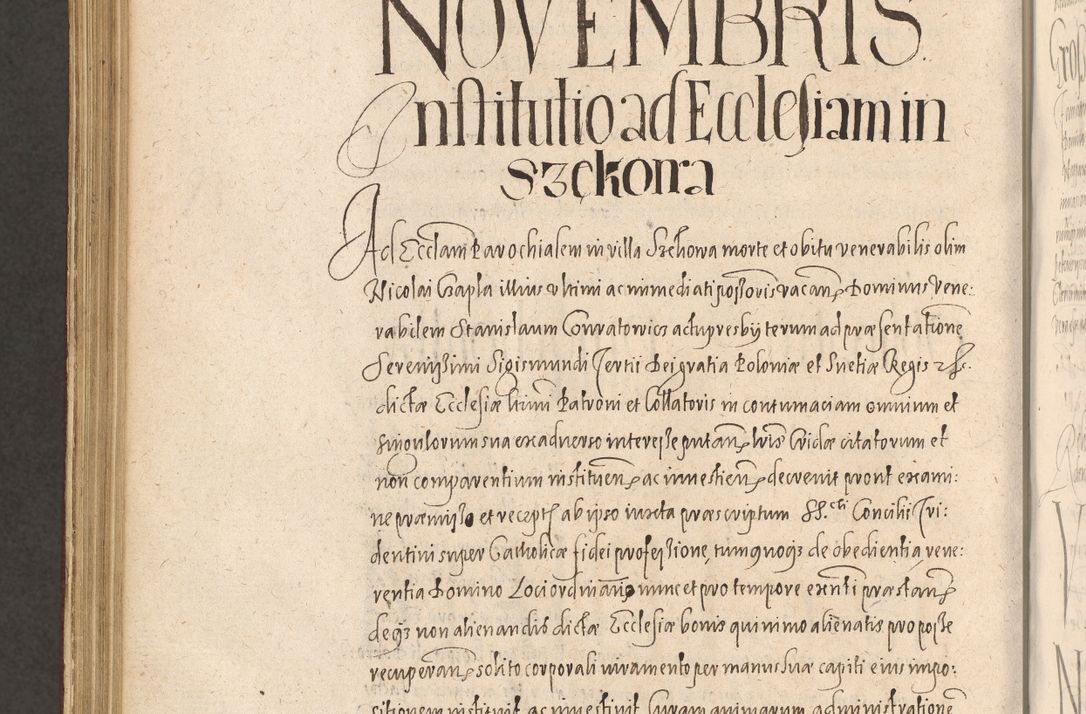 NOVEMBRIS.
Institutio ad Ecclesiam in
Szękowa
Ad Ecclam Parochialem in villa Szekowa morte et obitu venerabilis olim
Nicolai Czapla illius ultimi ac immediati possoris vacan. Dominus Vene:
rabilem Stanislaum Convatowicz actu presbyterum ad præsentatione
Serenissimi Sigismundi Tertii Dei gratia Poloniæ et Suetiæ Regis
dictæ Ecclesiæ ltimi Patroni et Collatoris in contumaciam omnium et
singulorum sua ex adverso interesse putan. lris Cridæ citatorum et
non comparentium instituen. ac investien. decrevit prout exami:
ne præmisso et recepta ab ipso iuxta præscriptum SS.cti Concilii Tri:
dentini super Catholicæ fidei professione, tumquoqz de obedientia reve:
rentia Domino Loci ordinario nunc et pro tempore exnti præstan.
deqz non alienandis dictæ Ecclesiæ bonis quinimo alienatis pro posse
recuperan. solito corporali iuramento per manus suæ capiti eius impo:
sitionem instituit ac investivit Curam animarum administratione